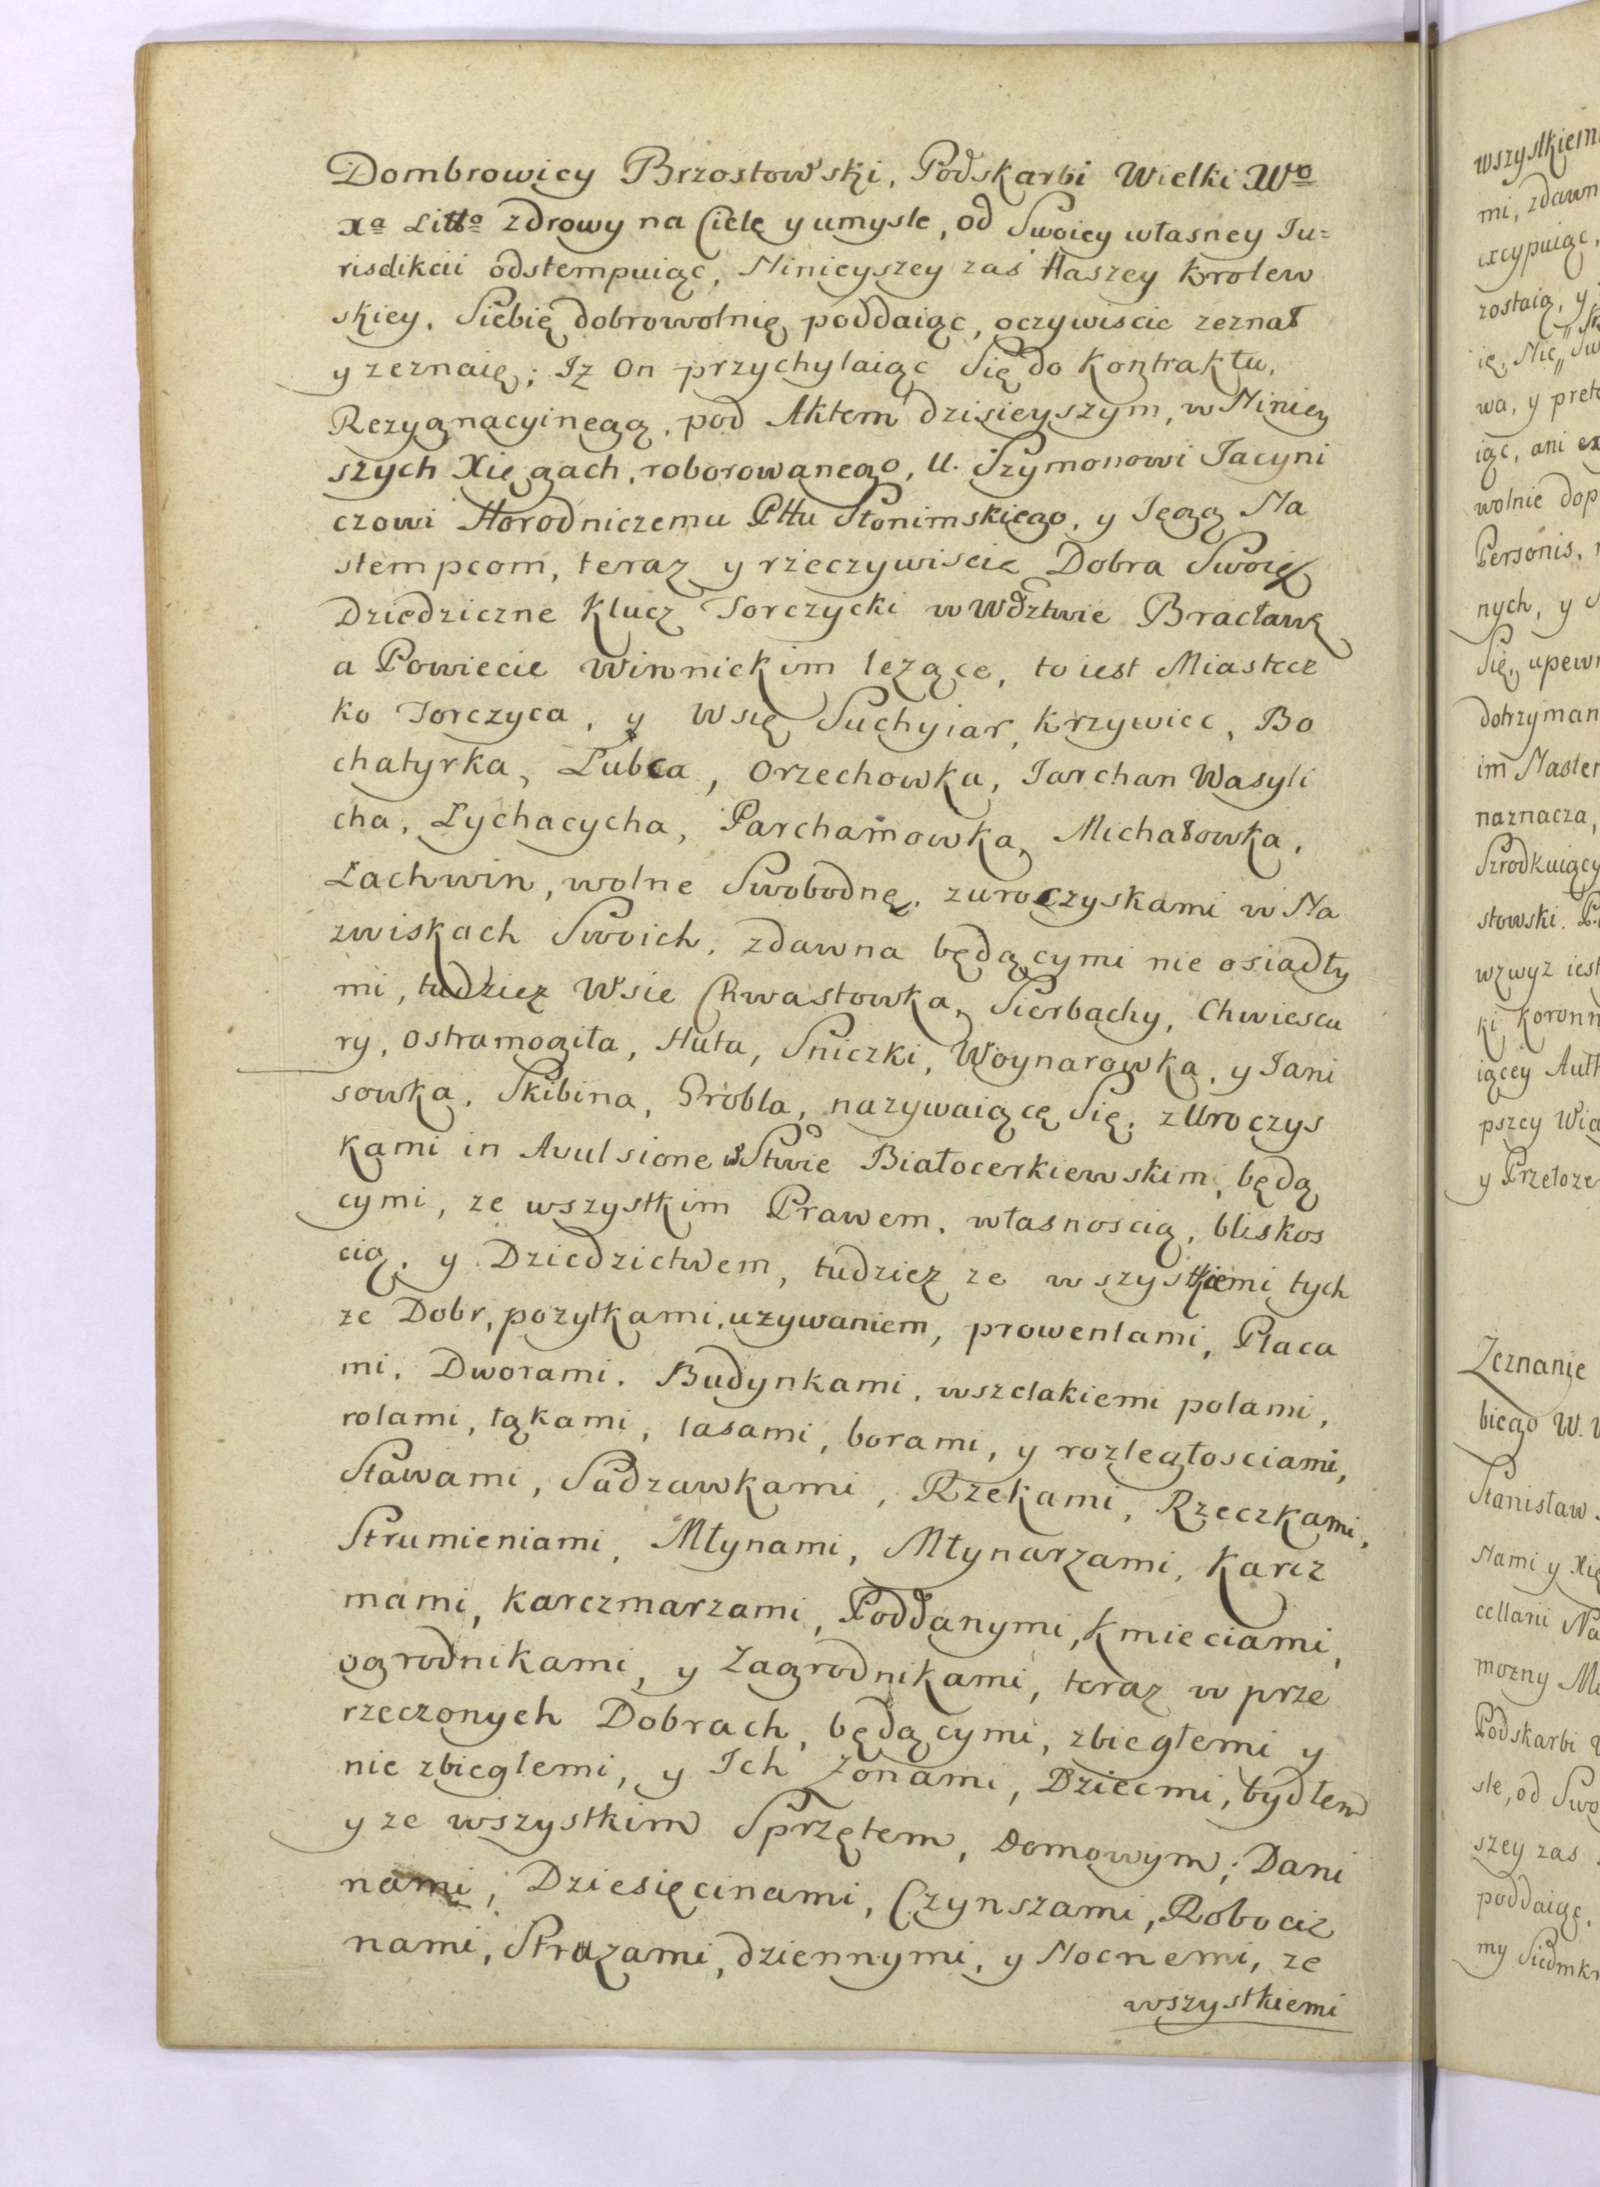 Dombrowicy Brzostowski, Podskarbi Wielki Wº
Xª Littº zdrowy na Ciele y umysle, od Swoiey własney Ju=
risdikcii odstempuiąc, Ninieyszey zaś Naszey Krolew
skiey, Siebie dobrowolnie poddaiąc, oczywiscie zeznał
y zeznaie; Iż On przychylaiąc Się do Kontraktu,
Rezygnacyinego, pod Aktem dzisieyszym, w Niniey
szych Xięgach, roborowanego, U. Szymonowi Jacyni
czowi Horodniczemu Pttu Słonimskiego, y Jego Na
stempcom, teraz y rzeczywiscie Dobra Swoie
Dziedziczne Klucz Torczycki w Wdztwie Bracławs
a Powiecie Winnickim leżące, to iest Miastecz
ko Torczyca, y Wsie Suchyiar, Krzywiec, Bo
chatyrka, Łubca, Orzechowka, Jarchan Wasyli
cha, Łychacycha, Parchamowka, Michałowka,
Łachwin, wolne Swobodne, z uroczyskami w Na
zwiskach Swoich, zdawna będącymi nie osiadły
mi, tudziez Wsie Chwastowka, Sierbachy, Chwiescu
ry, Ostramogiła, Huta, Sniczki, Woynarowka, y Jani
sowka, Skibina, Grobla, nazywaiące Się, z Uroczys
kami in Avulsione w Sttwie Białocerkiewskim, będą
cymi, ze wszystkim Prawem, własnoscią, bliskos
cią, y Dziedzictwem, tudziez ze wszystkiemi tych
ze Dobr, pozytkami, uzywaniem, prowentami, Placa
mi, Dworami, Budynkami, wszelakiemi polami,
rolami, łąkami, lasami, borami, y rozległosciami,
Stawami, Sadzawkami, Rzekami, Rzeczkami,
Strumieniami, Młynami, Młynarzami, Karcz
mami, Karczmarzami, Poddanymi, Kmieciami,
ogrodnikami, y Zagrodnikami, teraz w prze
rzeczonych Dobrach, będącymi, zbiegłemi y
nie zbiegłemi, y Ich Zonami, Dziecmi, bydłem
y ze wszystkim Sprzętem, Domowym; Dani
nami, Dziesięcinami, Czynszami, Robociz
nami, Strazami, dziennymi, y Nocnemi, ze
wszystkiemi
wszystkiemi
mi, zdawn
excypuiąc,
zostaią, y
ię, Nic
wa, y pret
iąc, ani ex
wolnie dop
Personis,
nych, y
Się, upewn
dotrzyman
im Nastem
naznacza,
Szrodkuiący
stowski.
wzwyz iest
ki Koronn
iącey Auth
pszey Wia
y Przełoze
Zeznanie
biego W.
Stanisław
Nami y Xię
cellarii Na
mozny
Podskarbi
sle, od Swo
szey zas
poddaiąc,
my Siedmk